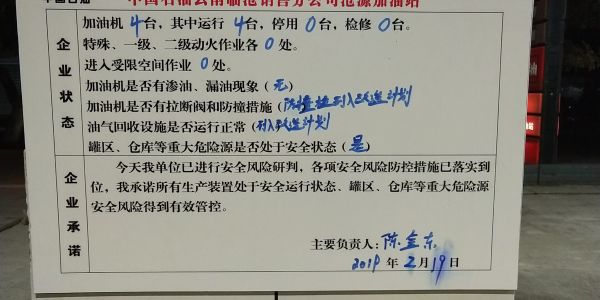 中国石油云南临沧销售分公司沧源加油站
企业状态
加油机 4台，其中运行 4台，停用 0台，检修 0台。
特殊、一级、二级动火作业各 0处。
进入受限空间作业 0处。
加油机是否有渗油、漏油现象（无）
加油机是否有拉断阀和防撞措施（防撞柱列入改造计划
油气回收设施是否运行正常（列入改造计划
罐区、仓库等重大危险源是否处于安全状态（是）
企业承诺
今天我单位已进行安全风险研判，各项安全风险防控措施已落实到
位，我承诺所有生产装置处于安全运行状态、罐区、仓库等重大危险源
安全风险得到有效管控。
主要负责人：陈金东
2019 年 2月19日